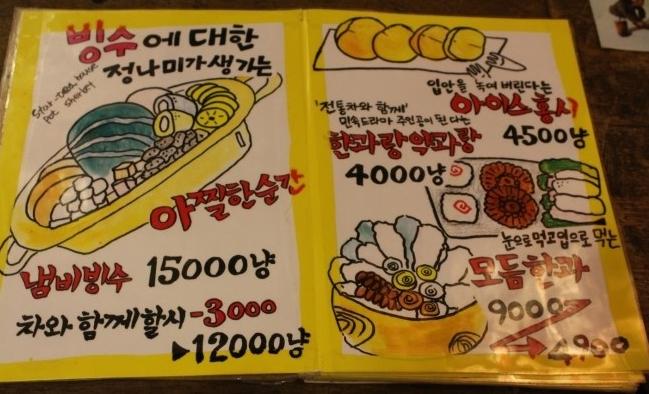 빙수에 대한
정나미가 생기는
Star-Tea house
Pot sherby
아찔한 순간
냄비빙수 15000냥
차와 함께 할시 -3000
▶12000냥
입안을 녹여 버린다는
아이스홍시
4500냥
'전통차와 함께'
민속드라마 주전공이 된 다는
한과랑 약과랑
4000냥
눈으로 먹고 입으로 먹는
모듬한과
9000
4900